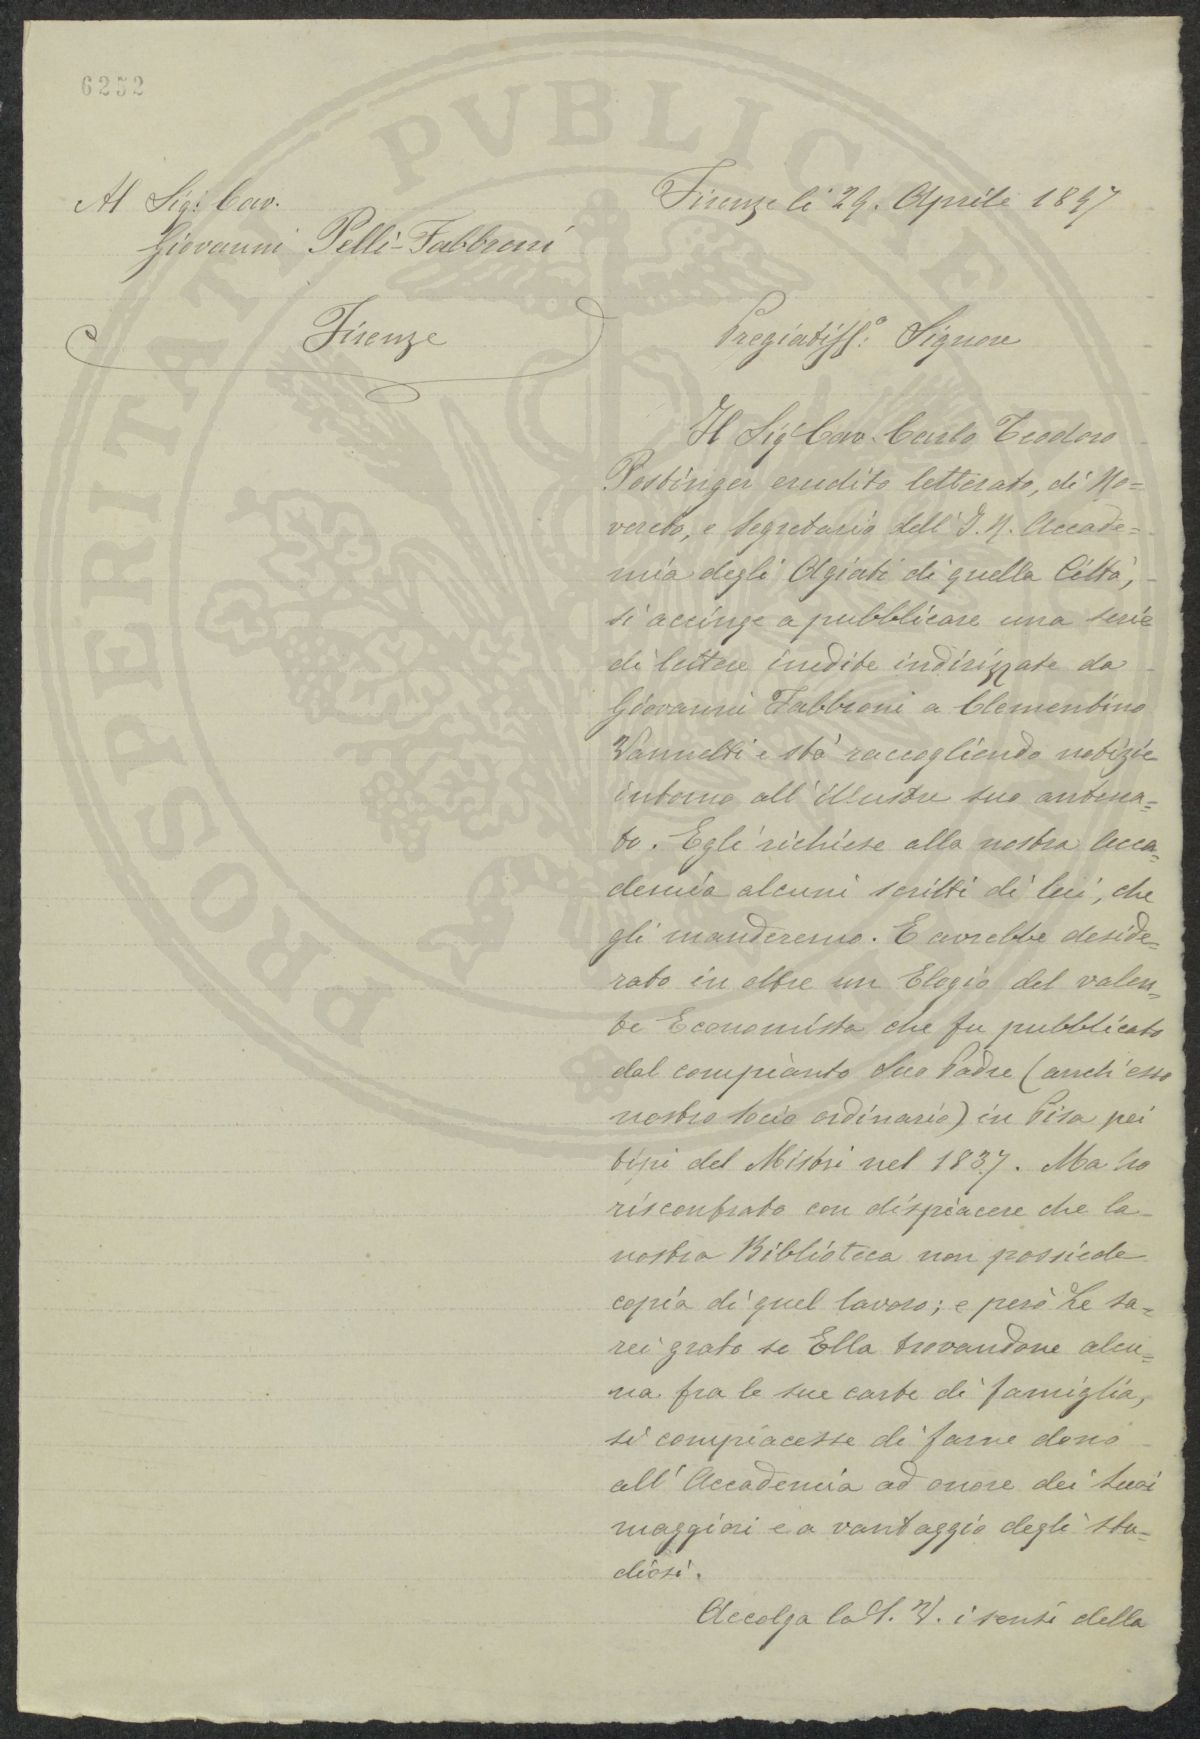 6252
PROSPERITATI PUBLICAE
Al Sigr. Cav.
Giovanni Pelli-Fabbroni
Firenze
Firenze li 29. Aprile 1897
Pregiatiss.o Signore
Il Sigr Cav. Carlo Teodoro
Postinger erudito letterato, di Ro=
vereto, e Segretario dell'I. R. Accade=
mia degli Agiati di quella Città,
si accinge a pubblicare una serie
di lettere inedite indirizzate da
Giovanni Fabbroni a Clementino
Vannetti e stà raccogliendo notizie
intorno all'illustre suo antena=
to. Egli richiese alla nostra Acca=
demia alcuni scritti di lui, che
gli manderemo. E avrebbe deside=
rato in oltre un Elogio del valen=
te Economista che fu pubblicato
dal compianto Suo Padre (anch'esso
nostro Socio ordinario) in Pisa pei
tipi del Nistri nel 1837. Ma ho
riscontrato con dispiacere che la
nostra Biblioteca non possiede
copia di quel lavoro; e però Le sa=
rei grato se Ella trovandone alcu=
na fra le sue carte di famiglia,
si compiacesse di farne dono
all'Accademia ad onore dei Suoi
maggiori e a vantaggio degli stu=
diosi.
Accolga la S. V. i sensi della